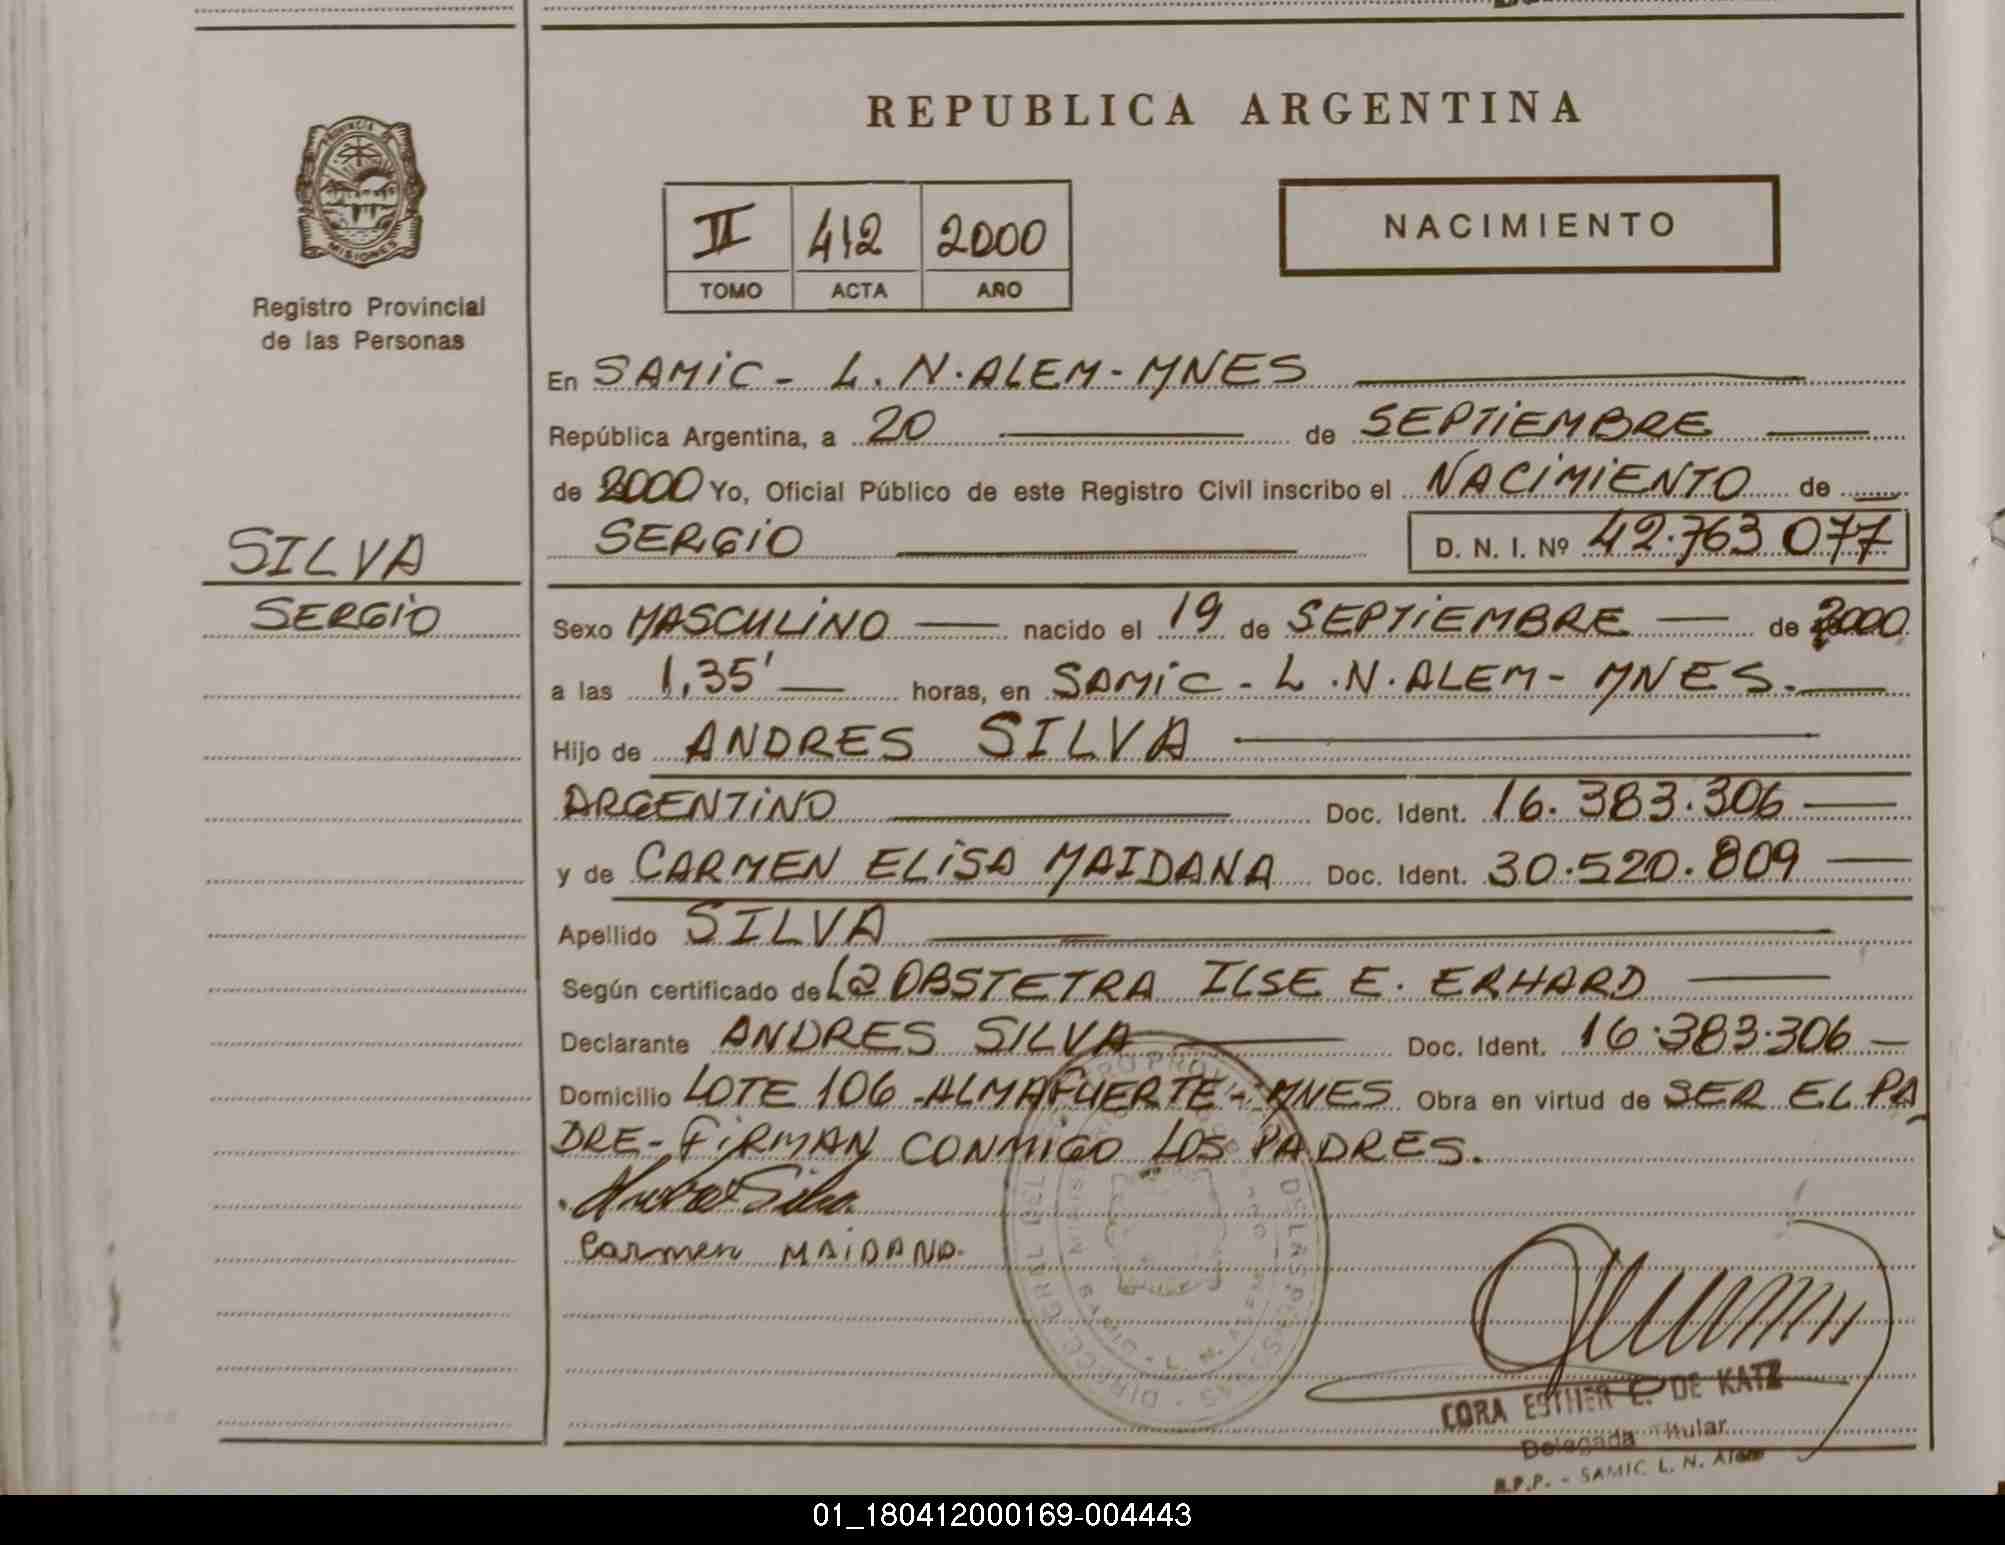 REPUBLICA ARGENTINA
PROVINCIA DE
MISIONES
Registro Provincial
de las Personas
II 412 2000
TOMO ACTA AÑO
NACIMIENTO
En SAMIC - L. N. ALEM - MNES
República Argentina, a 20 de SEPTIEMBRE
de 2000 Yo, Oficial Público de este Registro Civil inscribo el NACIMIENTO de
SERGIO D. N. I. Nº 42.763 077
SILVA
SERGIO
Sexo MASCULINO nacido el 19 de SEPTIEMBRE de 2000
a las 1,35' horas, en SAMIC - L. N. ALEM - MNES.
Hijo de ANDRES SILVA
ARGENTINO Doc. Ident. 16.383.306
y de CARMEN ELISA MAIDANA Doc. Ident. 30.520.809
Apellido SILVA
Según certificado de La OBSTETRA ILSE E. ERHARD
Declarante ANDRES SILVA Doc. Ident. 16.383.306
Domicilio LOTE 106 - ALMAFUERTE - MNES Obra en virtud de SER EL PA
DRE - FIRMAN CONMIGO LOS PADRES.
Silva
Carmen MAIDANA.
CORA ESTHER C. DE KATZ
Delegada Titular
R.P.P. - SAMIC L. N. Alem
01_180412000169-004443